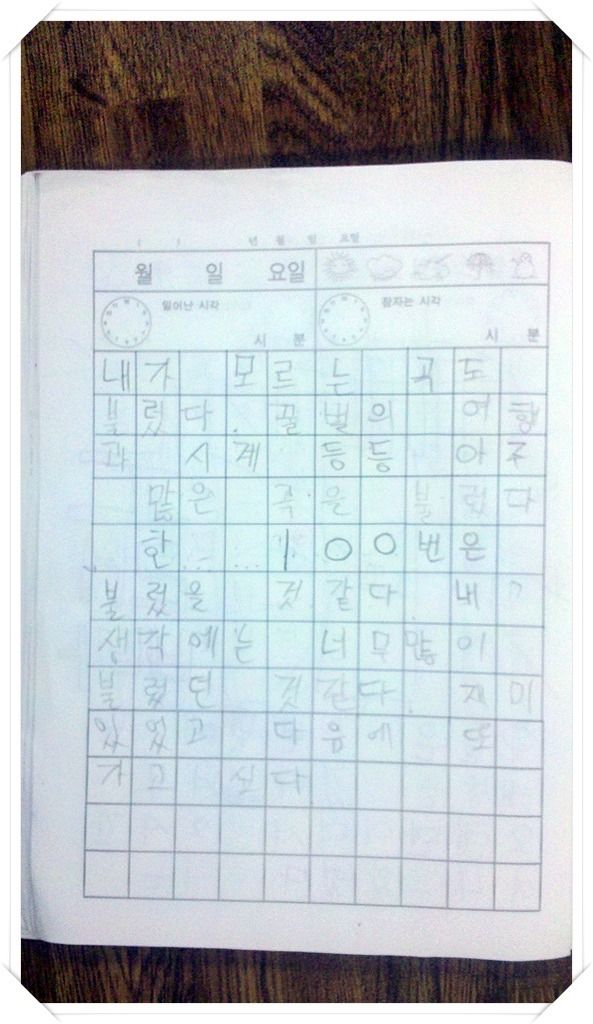 년 월 일 요일
월 일 요일
일어난 시각 잠자는 시각
시 분 시 분
내가 모르는 곡도
불렀다. 꿀벌의 여행
과 시계 등등 아주
많은 곡을 불렀다
한 100번은
불렀을 것 같다. 내
생각에는 너무 많이
불렀던 것 같다. 재미
있었고 다음에 또
가고 싶다